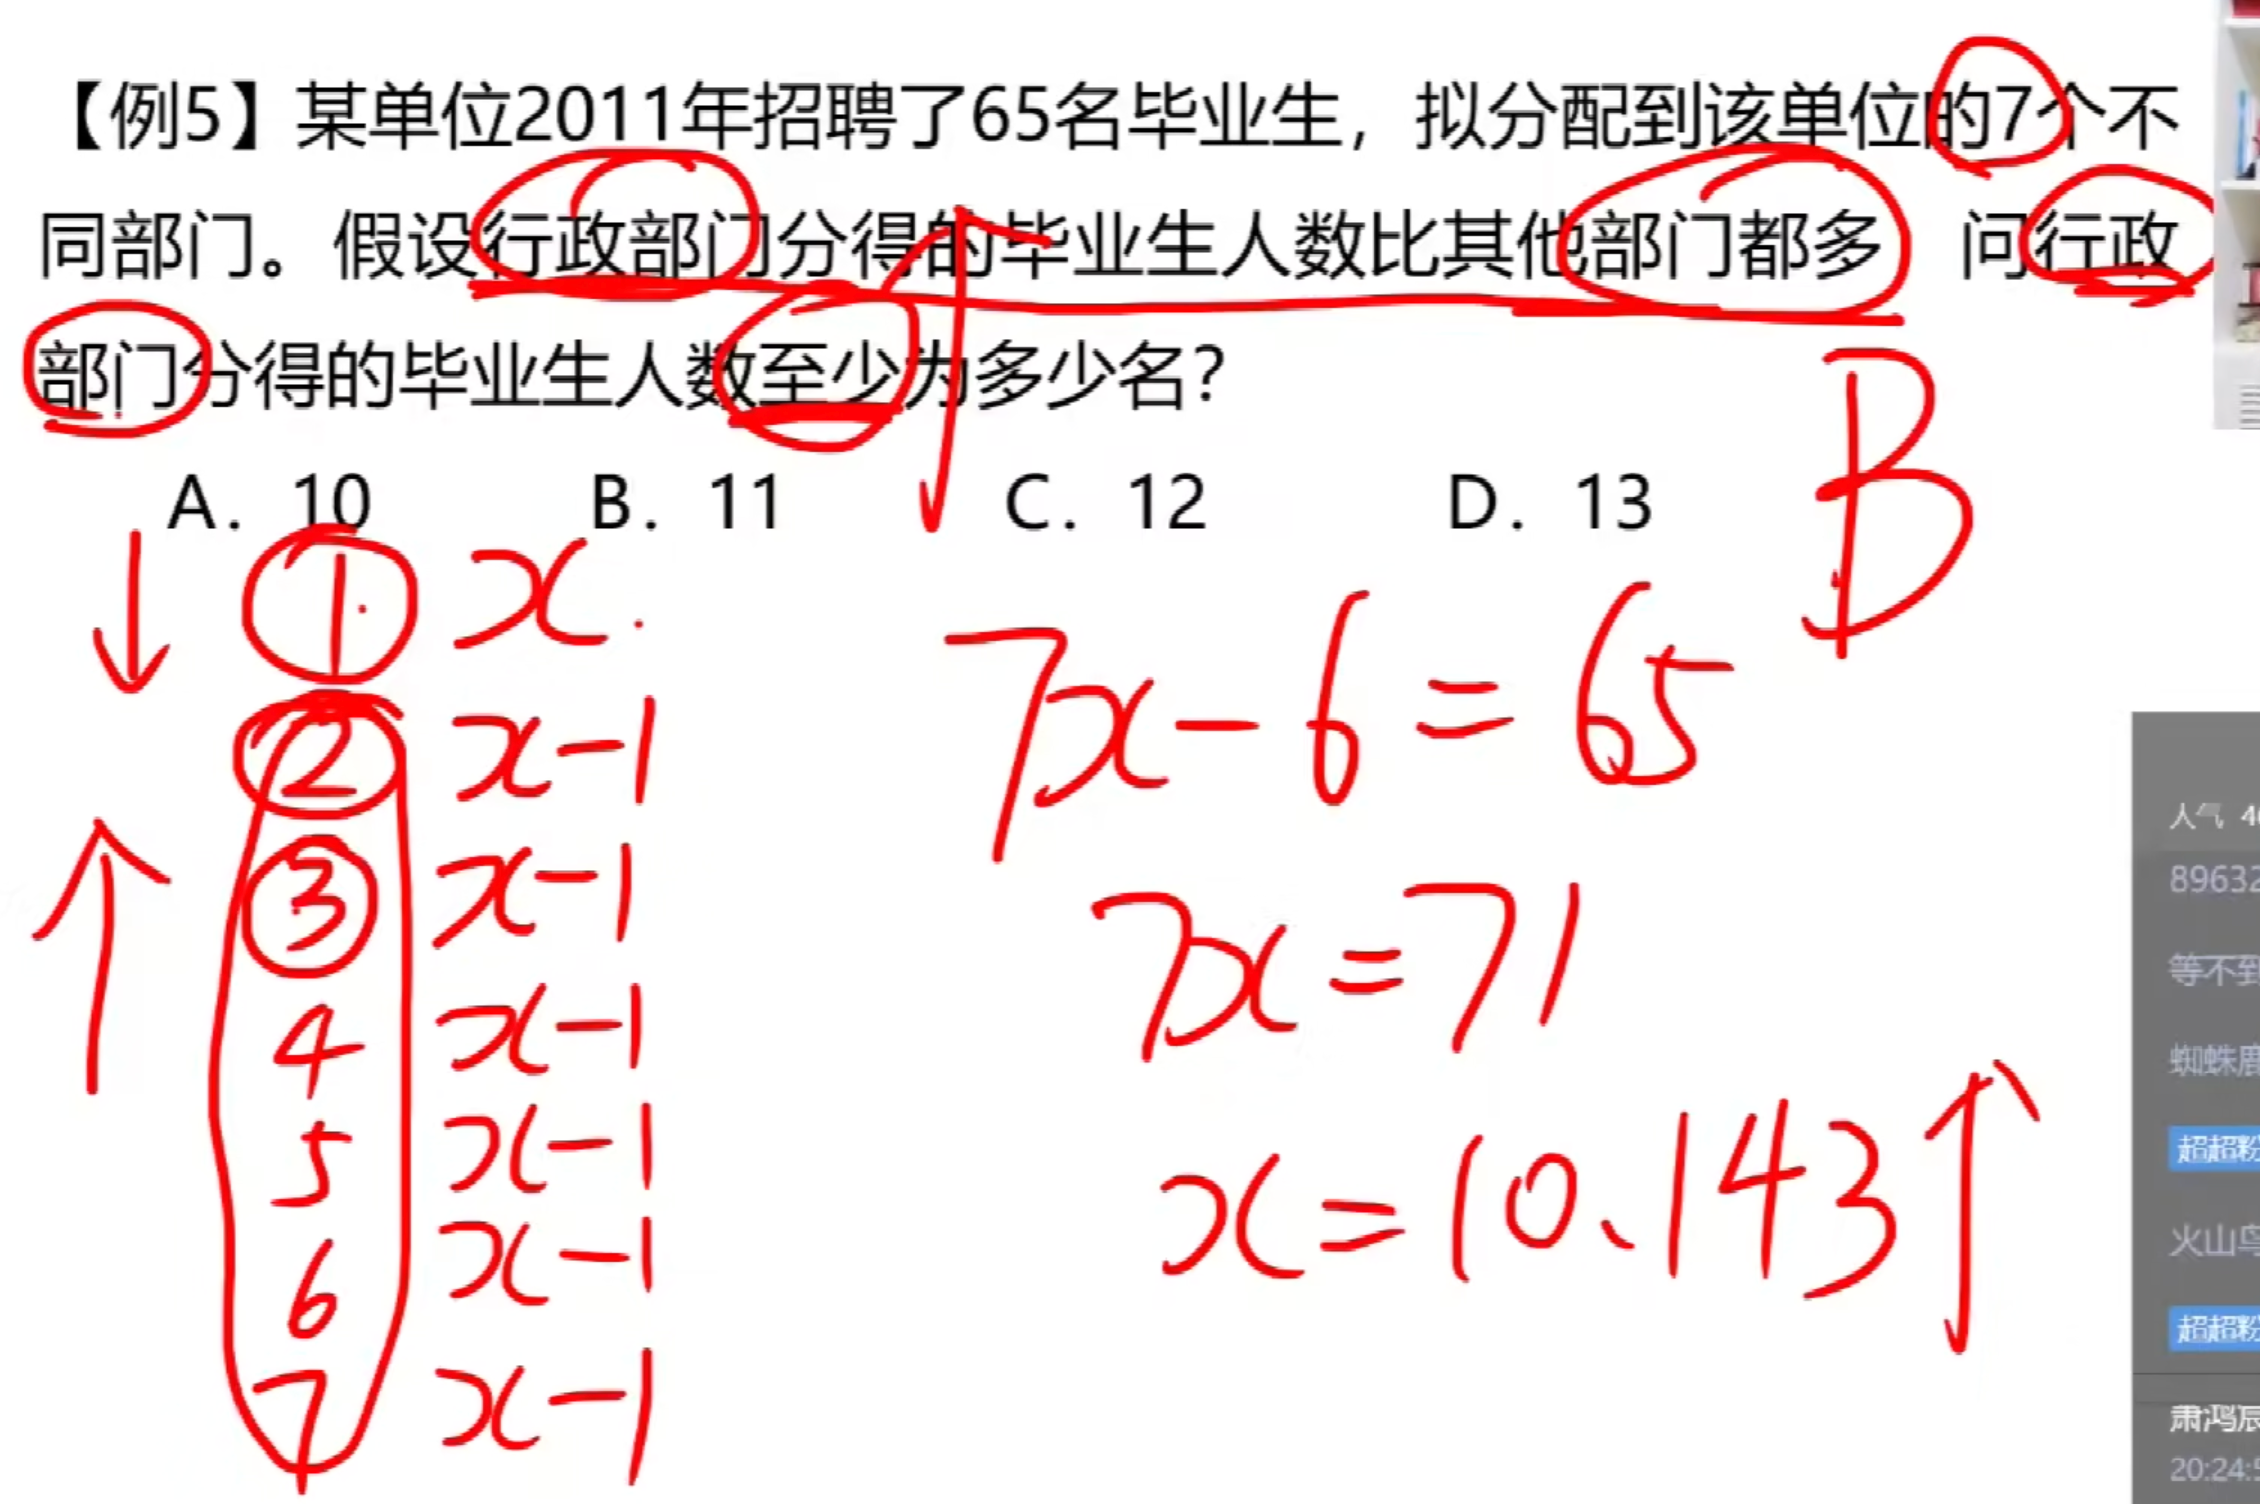 【例5】某单位2011年招聘了65名毕业生，拟分配到该单位的7个不
同部门。假设行政部门分得的毕业生人数比其他部门都多 问行政
部门分得的毕业生人数至少为多少名？
A. 10 B. 11 C. 12 D. 13
B
① x.
② x-1
③ x-1
4 x-1
5 x-1
6 x-1
7 x-1
7x-6=65
7x=71
x=10.143
人气
8963
等不到
蜘蛛
超超粉
火山鸟
超超粉
萧鸿辰
20:24: